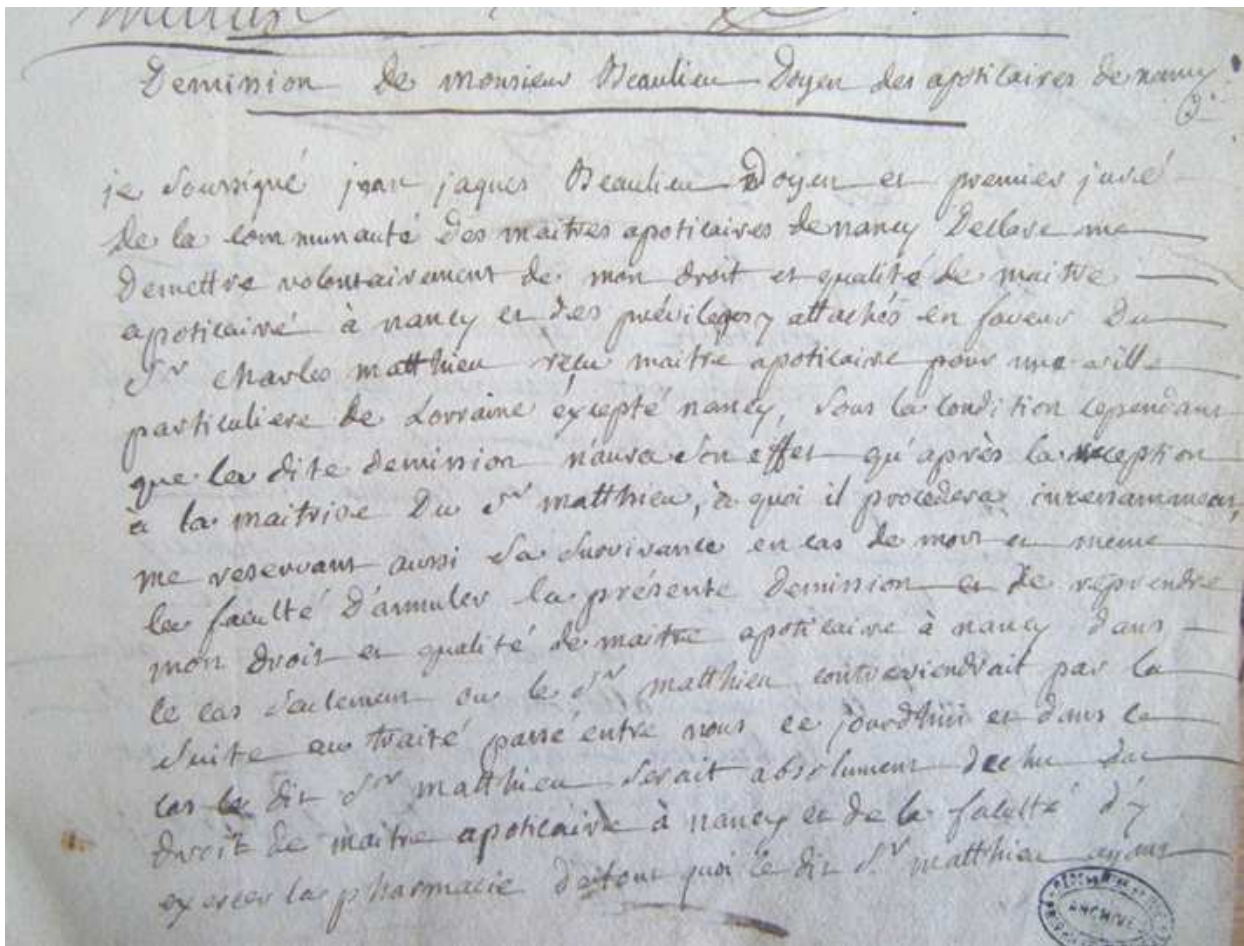 Demission de monsieur Beaulieu Doyen des apoticaires de nancy
je soussigné jean jaques Beaulieu Doyen et premier juré
de la communauté des maitres apoticaires de nancy Declare me
demettre volontairement de mon droit et qualité de maitre
apoticaire à nancy et des privileges y attachés en faveur du
Sr charles matthieu reçu maitre apoticaire pour une ville
particuliere de Lorraine éxcepté nancy, sous la condition cependant
que la dite demission n'aura son effet qu'après la reception
à la maitrise du Sr matthieu, à quoi il procedera incessamment,
me reservant aussi sa survivance en cas de mort et meme
la faculté d'annuler la présente demission et de reprendre
mon droit et qualité de maitre apoticaire à nancy dans
le cas seulement ou le Sr matthieu contreviendrait par la
suite au traité passé entre nous ce jourdhüi et dans ce
cas le dit Sr matthieu serait absolument dechu du
droit de maitre apoticaire à nancy et de la faculté d'y
exercer la pharmacie de tout quoi le dit Sr matthieu ayant
ARCHIVES